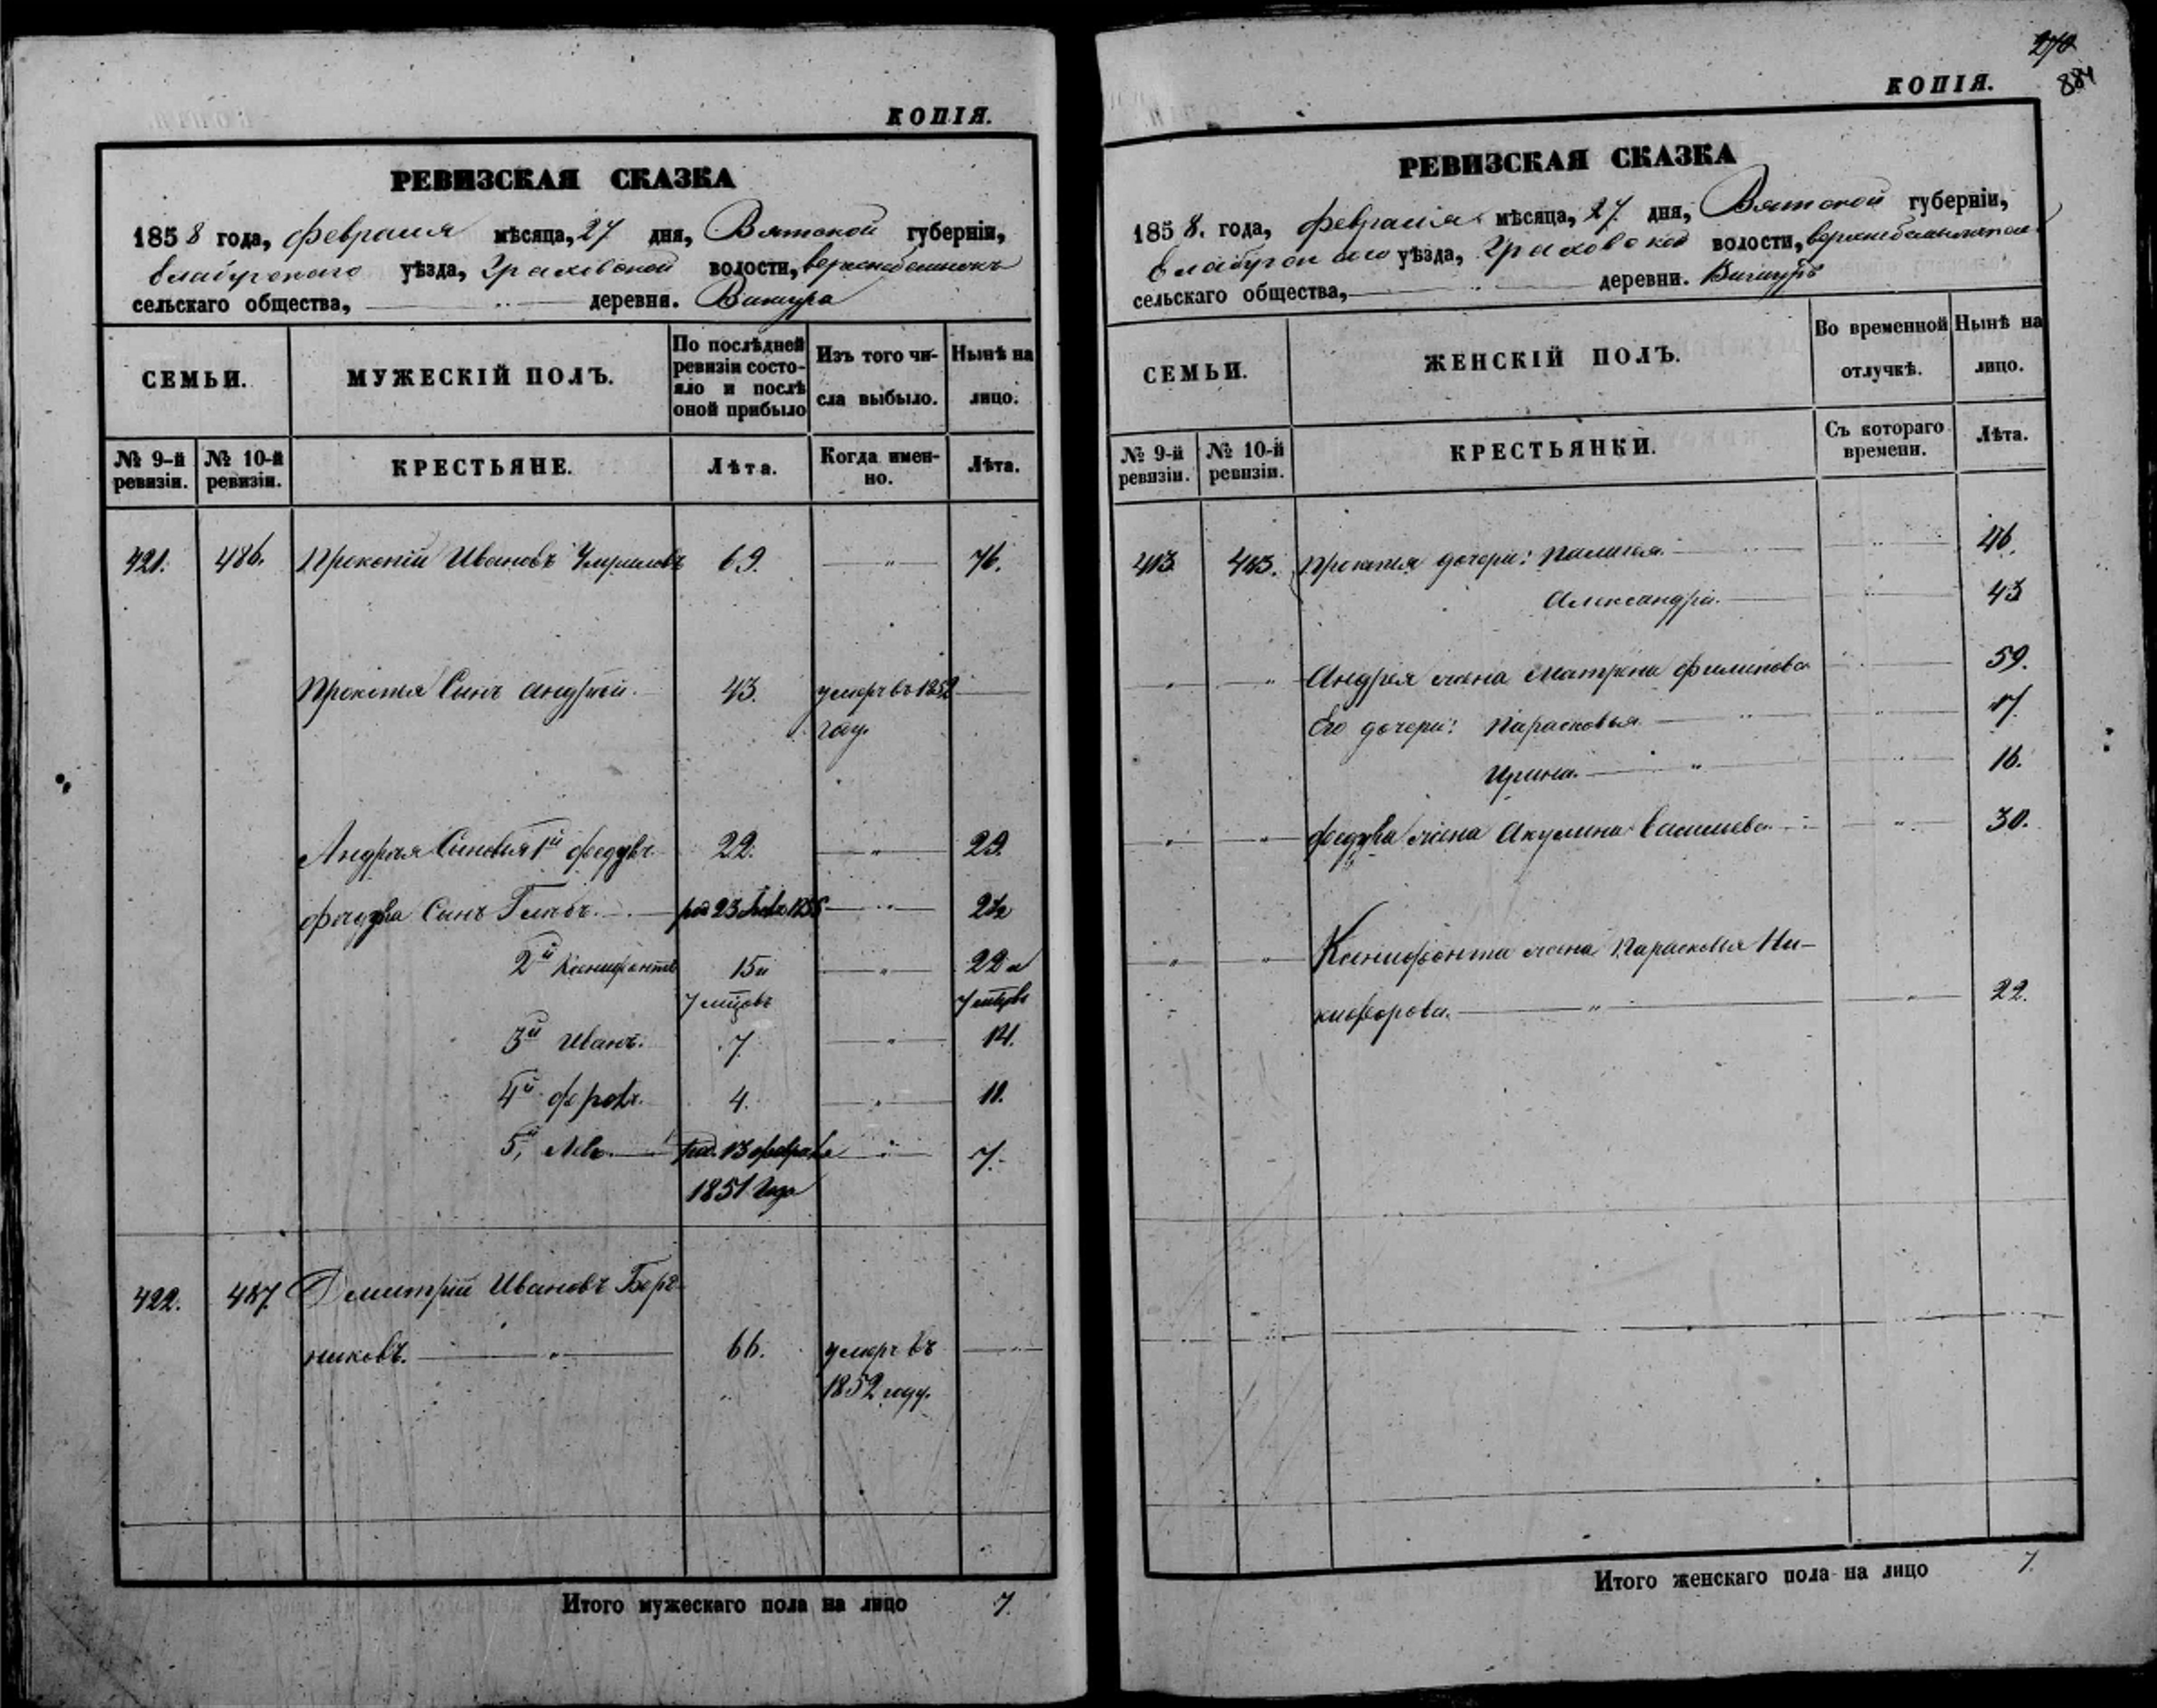 КОПІЯ.
РЕВИЗСКАЯ СКАЗКА
1858 года, февраля мѣсяца, 27 дня, Вятской губерніи,
Елабугского уѣзда, Граховской волости,
сельскаго общества, деревня.
СЕМЬИ.
МУЖЕСКІЙ ПОЛЪ.
По послѣдней ревизіи состо-
яло и послѣ
оной прибыло
Изъ того чи-
сла выбыло.
Нынѣ на
лицо.
№ 9-й
ревизіи.
№ 10-й
ревизіи.
КРЕСТЬЯНЕ.
Лѣта.
Когда имен-
но.
Лѣта.
421. 486. Прокопій Ивановъ 69. — " — 76.
Прокопья Сынъ Андрей. 43. умеръ въ 1852
году.
Андрея Сыновья 1й Федулъ 22. — " — 29.
Федула Сынъ Глѣбъ. — " — 2½
2й Ксенифонтъ 15 и — " — 22 и
7 мцовъ 7 мцовъ
3й Иванъ. 7. — " — 14.
4й Фролъ. 4. — " — 11.
5й Левъ. род. 13 февраля — " — 7.
1851 года
422. 487. Дмитрій Ивановъ
никовъ. — " — 66. умеръ въ
1852 году.
Итого мужескаго пола на лицо 7.
270
884
КОПІЯ.
РЕВИЗСКАЯ СКАЗКА
1858. года, февраля мѣсяца, 27. дня, Вятской губерніи,
Елабугского уѣзда, Граховской волости,
сельскаго общества, деревни.
СЕМЬИ.
ЖЕНСКІЙ ПОЛЪ.
Во временной
отлучкѣ.
Нынѣ на
лицо.
№ 9-й
ревизіи.
№ 10-й
ревизіи.
КРЕСТЬЯНКИ.
Съ котораго
времени.
Лѣта.
Прокопья дочери: 46.
Александра. 43
Андрея жена Матрена Филипова 59.
Его дочери: Парасковья. 17.
Ирина. 16.
Федула жена Акулина Васильева 30.
Ксенифонта жена Парасковья Ни-
кифорова. — " — 22.
Итого женскаго пола на лицо 7.